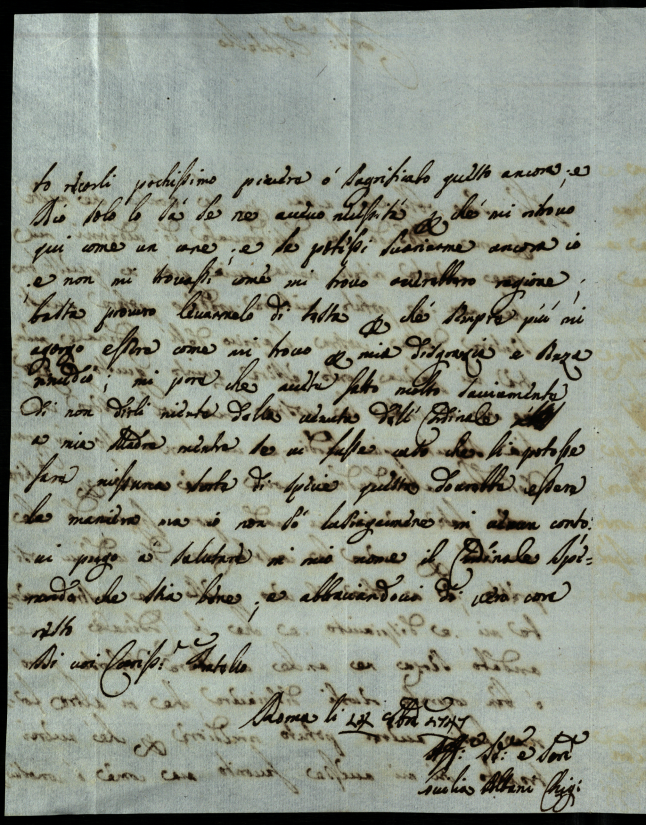 to ricorli pochissimo piacere ó sagrificato questo ancora, e
Dio solo lo sá se ne avevo necessitá che mi ritrovo
qui come un cane; e se potessi ancora io
e non mi trovassi come mi trovo averebbero ragione;
basta procuro levarmelo di testa che sempre piú mi
essere come mi trovo mia disgrazia e senza
rimedio; mi pare che avete fatto molto saviamente
di non dirli niente della venuta del Cardinale
a mia Madre mentre se vi fusse caso che li potesse
fare nissuna sorte di spicie questa doverebbe essere
la maniera ma io non só in conto.
vi prego á salutare in mio nome il Cardinale spe=
rando che stia bene, e abbraciandovi di vero core
resto
Di voi Cariss.º Fratello
Roma li 1747
Aff.ma Se.va e Sor.
Giulia Albani Chigi